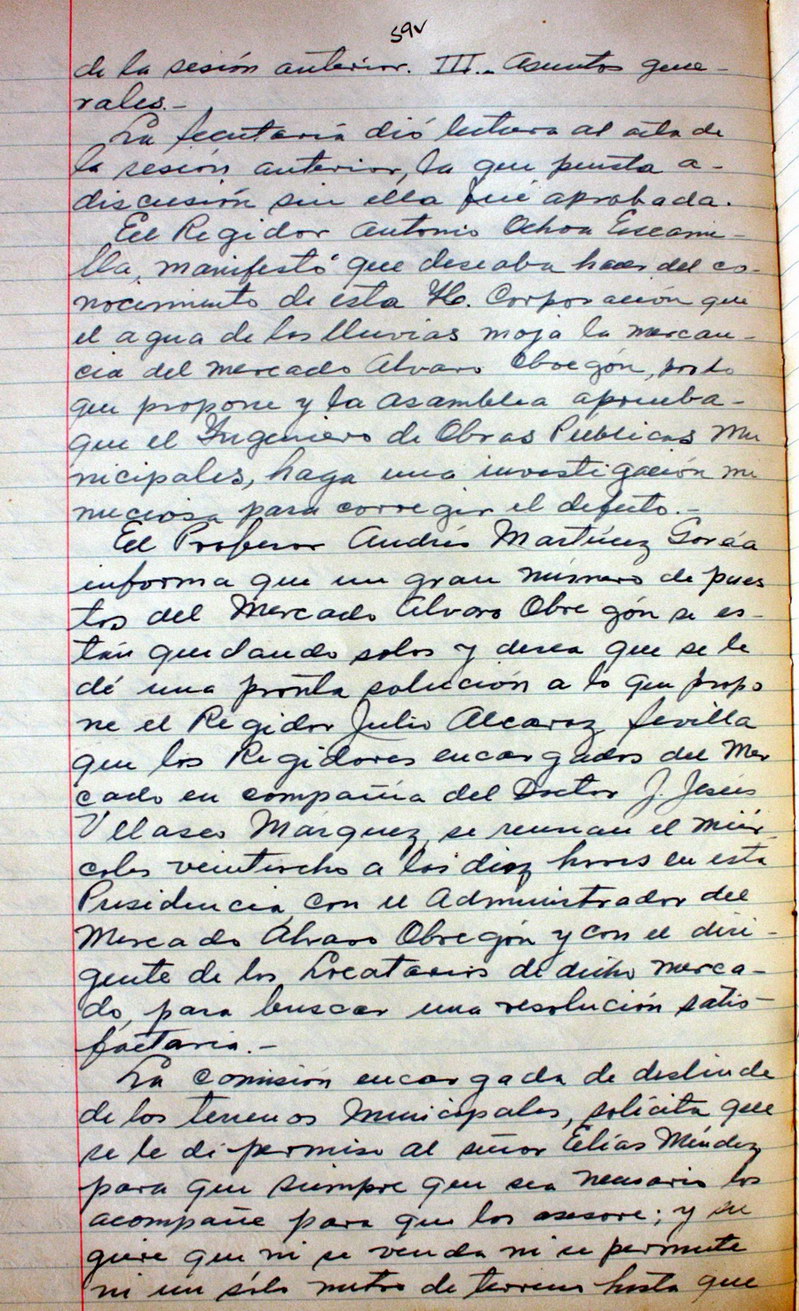 59v
de la sesión anterior. III.- Asuntos gene-
rales.-
La Secretaría dió lectura al acta de
la sesión anterior, la que puesta a-
discusión sin ella fué aprobada.
El Regidor Antonio Ochoa Escami-
lla, manifestó que deseaba hacer del co-
nocimiento de esta H. Corporación que
el agua de las lluvias moja la mercan-
cia del mercado Alvaro Obregón, por lo
que propone y la asamblea aprueba-
que el Ingeniero de Obras Publicas Mu
nicipales, haga una investigación mi
nuciosa para corregir el defecto.-
El Profesor Andrés Martínez
informa que un gran número de pues
tos del Mercado Alvaro Obregón se es-
tán quedando solos y desea que se le
dé una pronta solución a lo que propo
ne el Regidor Julio Alcaraz Sevilla
que los Regidores encargados del Mer
cado en compañía del Doctor J. Jesús
Vllasco Márquez se reunan el miér-
coles veintiocho a las diez horas en esta
Presidencia con el Administrador del
Mercado Alvaro Obregón y con el diri-
gente de los Locatarios de dicho merca-
do, para buscar una resolución satis-
factoria.-
La comisión encargada de deslinde
de los terrenos Municipales, solicita que
se le dé permiso al señor Elías Méndez
para que siempre que sea necesario los
acompañe para que los asesore; y su
giere que ni se venda ni se permute
ni un sólo metro de terreno hasta que